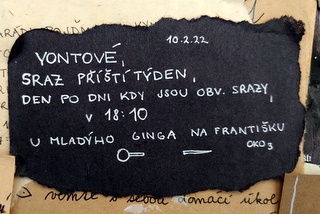 10.2.22
VONTOVÉ,
SRAZ PŘÍŠTÍ TÝDEN,
DEN PO DNI KDY JSOU OBV. SRAZY,
V 18:10
U MLADÝHO GINGA NA FRANTIŠKU
OKO 3
vemte s sebou domácí úkol